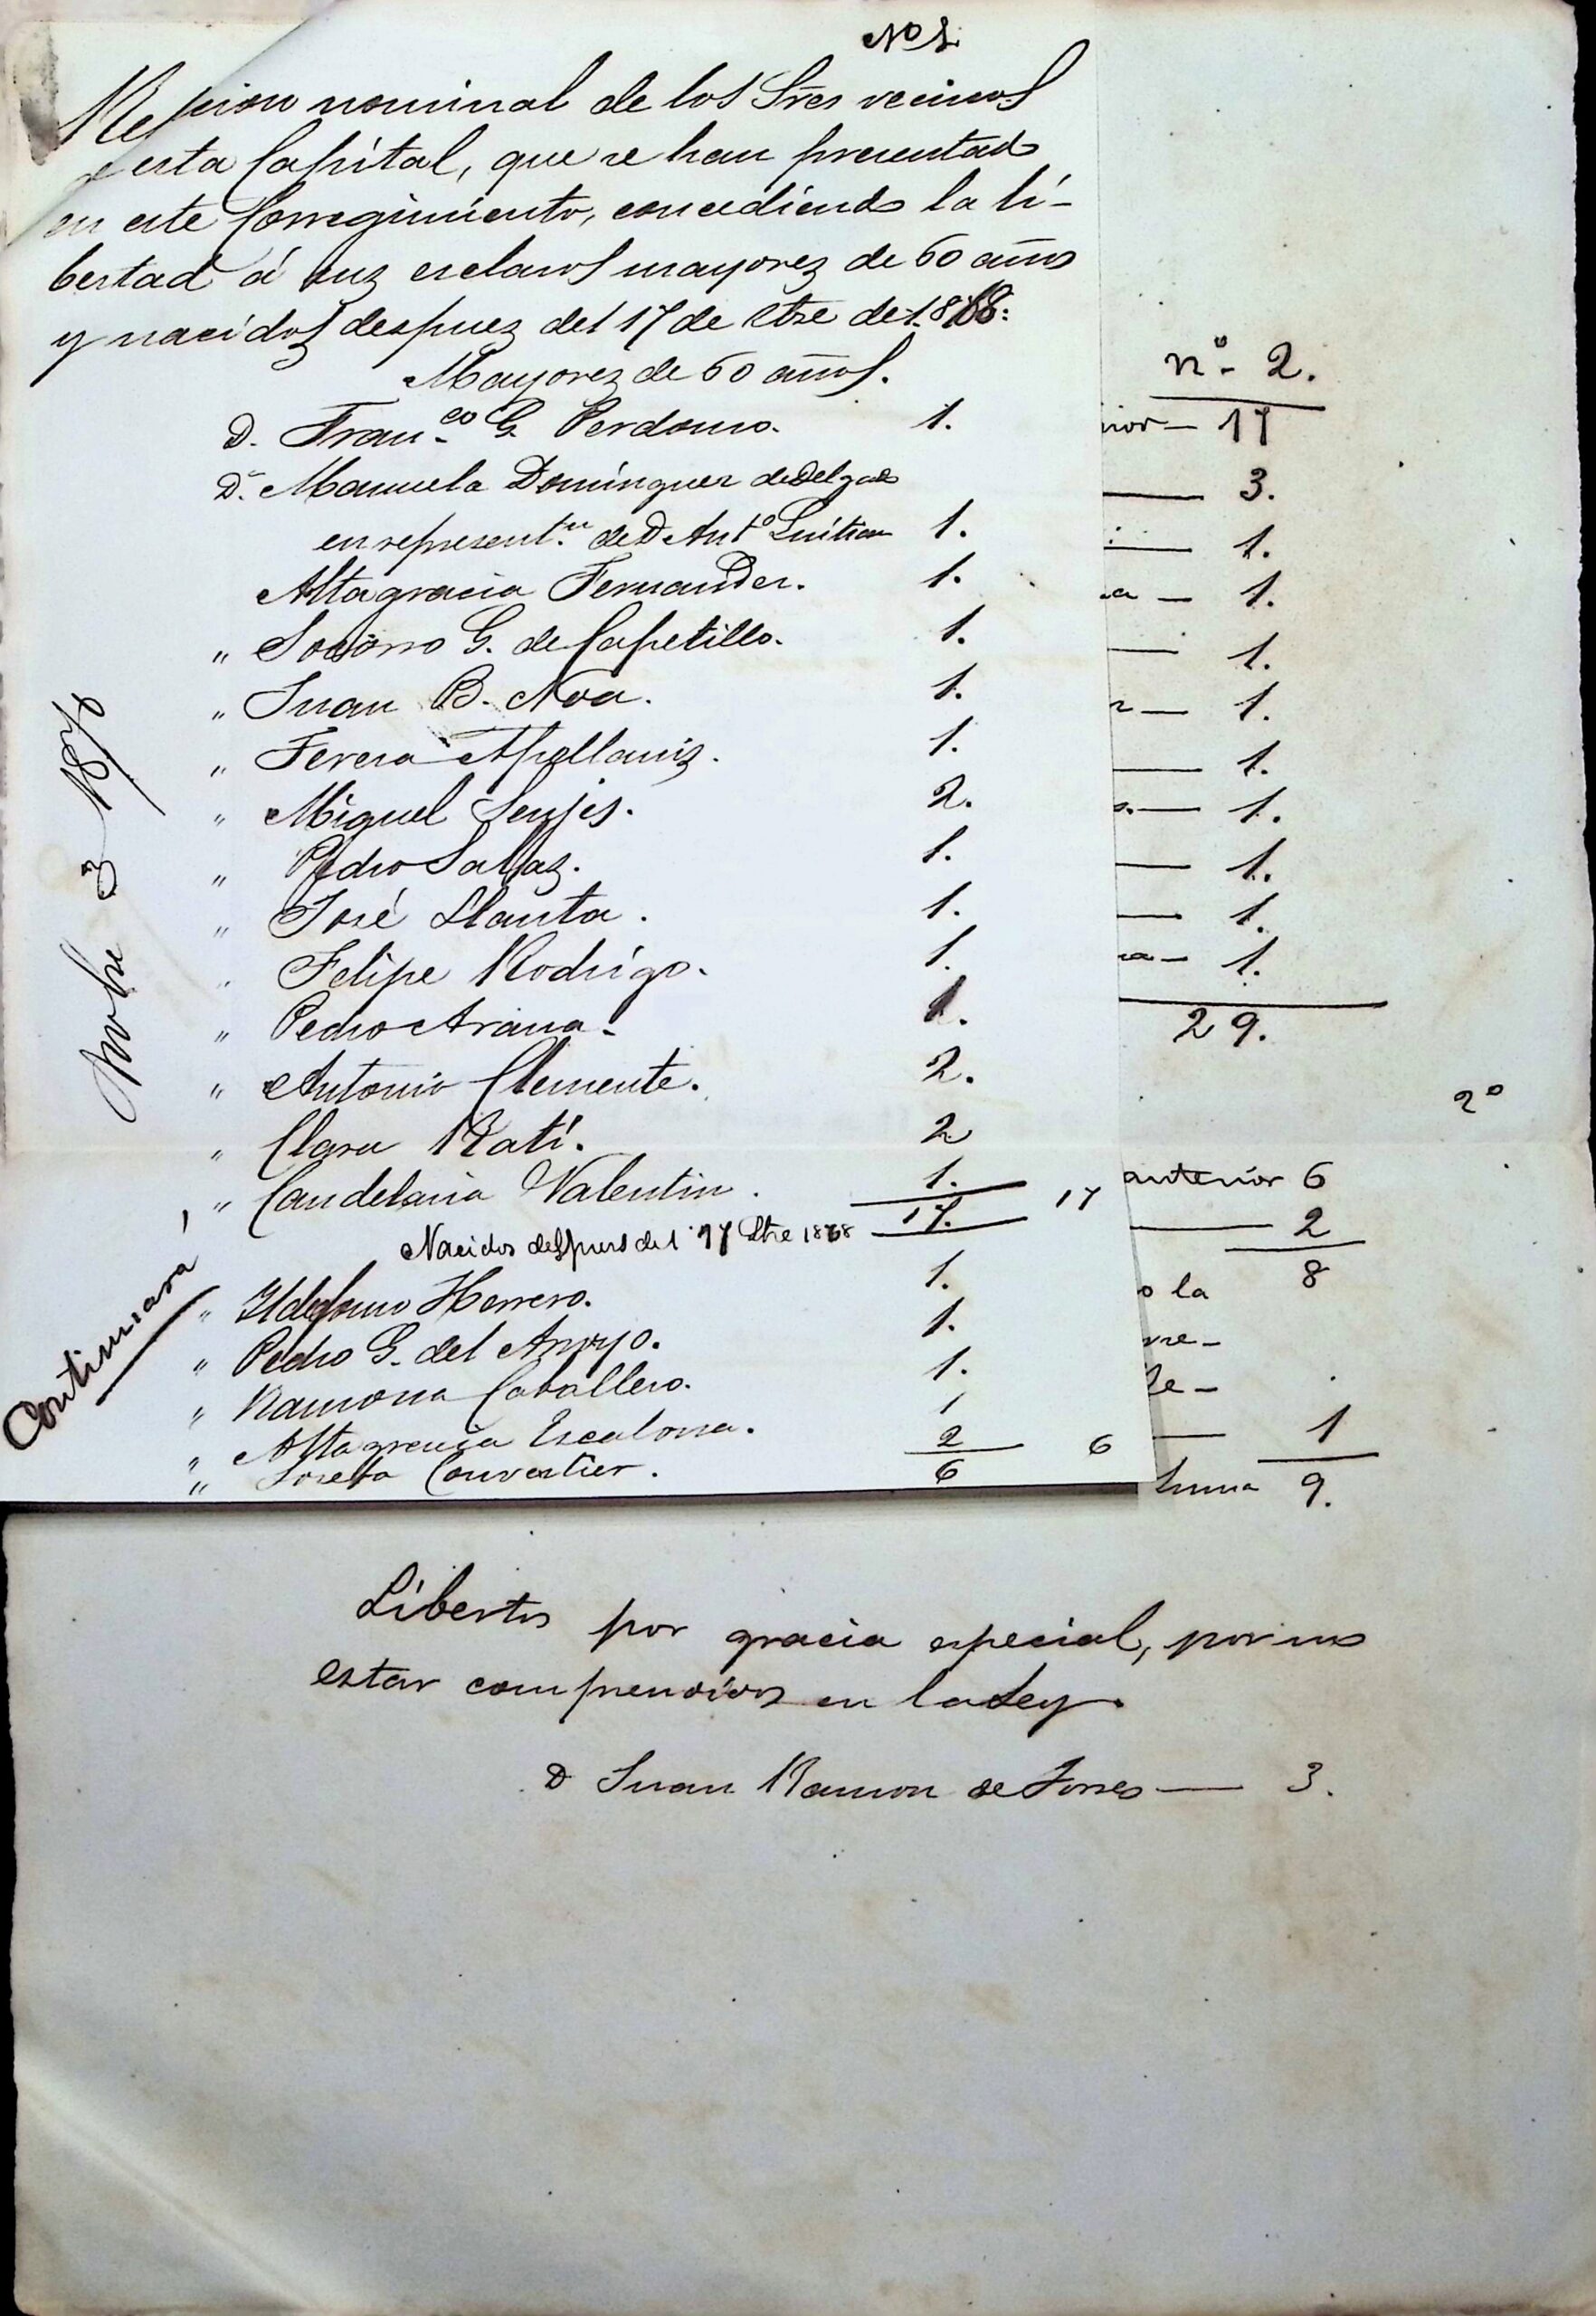 Nº 1.
Relacion nominal de los Sres vecinos
de esta Capital, que se han presentado
en este Corregimiento, concediendo la li-
bertad á sus esclavos mayores de 60 años
y nacidos despues del 17 de Stre de 1868:
Mayores de 60 años.
D. Fran.co G. Perdomo. 1.
Dª Manuela Dominguez de Delgado
en represent.n de D Antº 1.
Altagracia Fernandez. 1.
" Socorro G. de Capetillo. 1.
" Juan B. Noa. 1.
" Teresa Apellaniz. 1.
" Miguel 2.
" Pedro Salas. 1.
" José Llauta. 1.
" Felipe Rodrigo. 1.
" Pedro Arana. 1.
" Antonio Clemente. 2.
" Clara Ratí. 2
" Candelaria Valentin. 1.
17. 17
Nacidos despues del 17 Stre 1868
" Ildefonso Herrero. 1.
" Pedro G. del Arroyo. 1.
" Ramona Caballero. 1.
" Altagracia Escalona. 1
" Josefa 2
6 6
Nobre 3 1870
Continuará
nº 2.
rior — 17
— 3.
— 1.
a — 1.
— 1.
r — 1.
— 1.
s. — 1.
— 1.
— 1.
ra — 1.
29.
2º
anterior 6
— 2
8
o la
vre-
de-
— 1
Suma 9.
Libertos por gracia especial, por no
estar comprendidos en la Ley.
D Juan Ramon de Torres — 3.